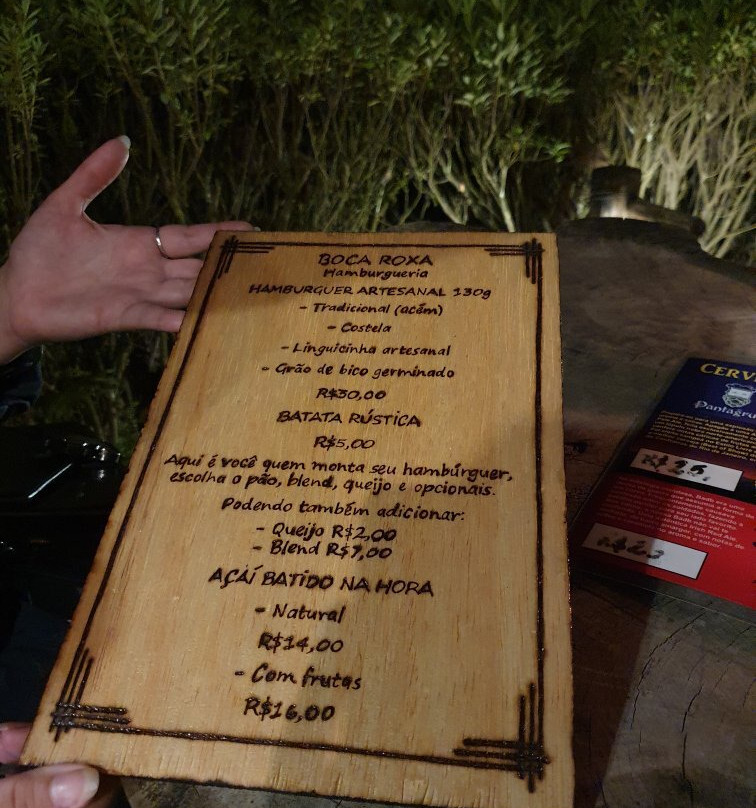 BOCA ROXA
Hamburgueria
HAMBURGUER ARTESANAL 130g
- Tradicional (acém)
- Costela
- Linguicinha artesanal
- Grão de bico germinado
R$30,00
BATATA RÚSTICA
R$5,00
Aqui é você quem monta seu hambúrguer,
escolha o pão, blend, queijo e opcionais.
Podendo também adicionar:
- Queijo R$2,00
- Blend R$7,00
AÇAÍ BATIDO NA HORA
- Natural
R$14,00
- Com frutas
R$16,00
CERV
Pantagru
R$25